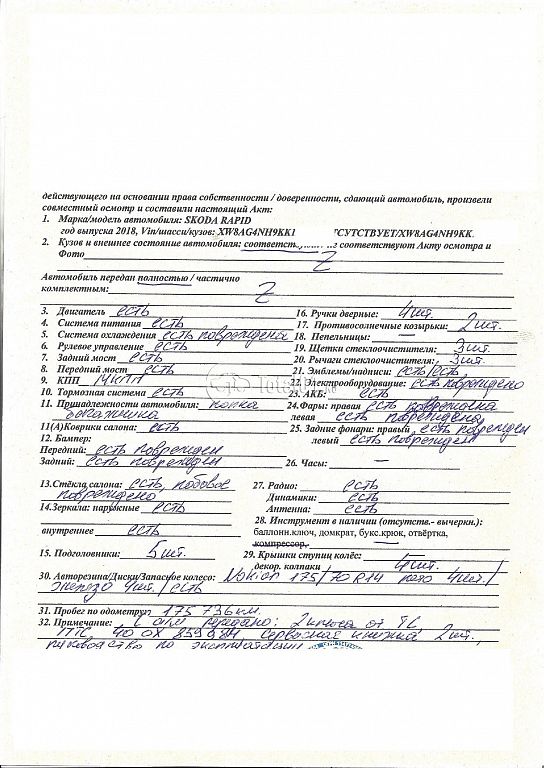 действующего на основании права собственности / доверенности, сдающий автомобиль, произвели
совместный осмотр и составили настоящий Акт:
1. Марка/модель автомобиля: SKODA RAPID
год выпуска 2018, Vin/шасси/кузов: XW8AG4NH9KK1 ТСУТСТВУЕТ/XW8AG4NH9KK
2. Кузов и внешнее состояние автомобиля: соответствуют/не соответствуют Акту осмотра и
Фото Z
Автомобиль передан полностью / частично
комплектным: Z
3. Двигатель есть
4. Система питания есть
5. Система охлаждения есть повреждена
6. Рулевое управление есть
7. Задний мост есть
8. Передний мост есть
9. КПП МКПП
10. Тормозная система есть
11. Принадлежности автомобиля: полка
багажника
11(А)Коврики салона: есть
12. Бампер:
Передний: есть поврежден
Задний: есть поврежден
13.Стёкла салона: есть, лобовое
повреждено
14.Зеркала: наружные есть
внутреннее есть
15. Подголовники: 5 шт.
16. Ручки дверные: 4 шт.
17. Противосолнечные козырьки: 2 шт.
18. Пепельницы: —
19. Щетки стеклоочистителя: 3 шт.
20. Рычаги стеклоочистителя: 3 шт.
21. Эмблемы/надписи: есть/есть
22. Электрооборудование: есть повреждено
23. АКБ: есть
24.Фары: правая есть повреждена
левая есть повреждена
25. Задние фонари: правый есть поврежден
левый есть поврежден
26. Часы: —
27. Радио: есть
Динамики: есть
Антенна: есть
28. Инструмент в наличии (отсутств.- вычеркн.):
баллонн.ключ, домкрат, букс.крюк, отвёртка,
компрессор, —
29. Крышки ступиц колёс: —
декор. колпаки 4 шт.
30. Авторезина/Диски/Запасное колесо: Nokian 175/70 R14 лето 4шт./
железо 4шт./ есть
31. Пробег по одометру: 175 736 км.
32. Примечание: С а/м передано: 2 ключа от ТС
ПТС 40 ОХ сервисная книжка 2 шт.,
руководство по эксплуатации